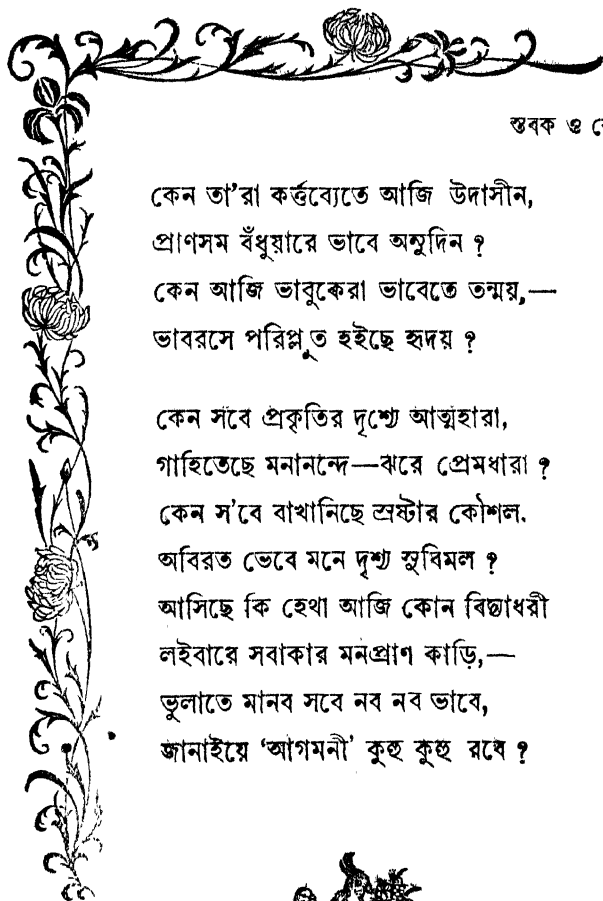 স্তবক ও
কেন তা'রা কর্ত্তব্যেতে আজি উদাসীন,
প্রাণসম বঁধুয়ারে ভাবে অনুদিন ?
কেন আজি ভাবুকেরা ভাবেতে তন্ময়,—
ভাবরসে পরিপ্লুত হইছে হৃদয় ?
কেন সবে প্রকৃতির দৃশ্যে আত্মহারা,
গাহিতেছে মনানন্দে—ঝরে প্রেমধারা ?
কেন স'বে বাখানিছে স্রষ্টার কৌশল.
অবিরত ভেবে মনে দৃশ্য সুবিমল ?
আসিছে কি হেথা আজি কোন বিদ্যাধরী
লইবারে সবাকার মনপ্রাণ কাড়ি,—
ভুলাতে মানব সবে নব নব ভাবে,
জানাইয়ে ‘আগমনী’ কুহু কুহু রবে ?